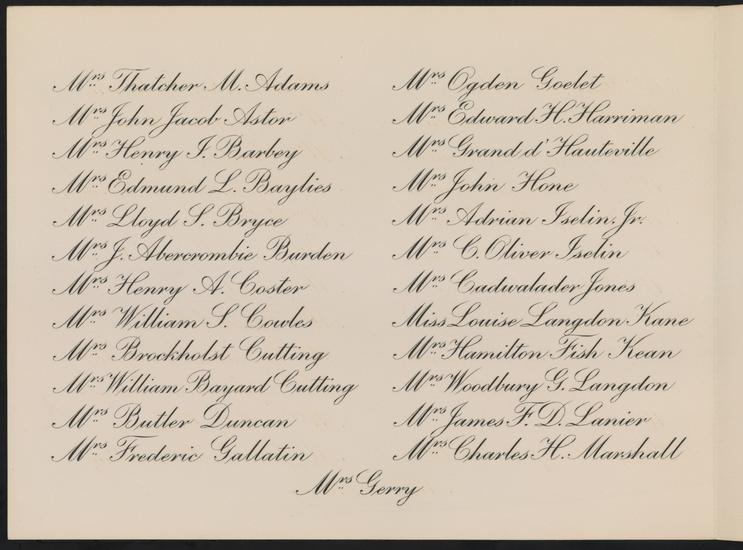 Mrs Thatcher M. Adams
Mrs John Jacob Astor
Mrs Henry I. Barbey
Mrs Edmund L. Baylies
Mrs Lloyd S. Bryce
Mrs J. Abercrombie Burden
Mrs Henry A. Coster
Mrs William S. Cowles
Mrs Brockholst Cutting
Mrs William Bayard Cutting
Mrs Butler Duncan
Mrs Frederic Gallatin
Mrs Ogden Goelet
Mrs Edward H. Harriman
Mrs Grand d'Hauteville
Mrs John Hone
Mrs Adrian Iselin, Jr.
Mrs C. Oliver Iselin
Mrs Cadwalader Jones
Miss Louise Langdon Kane
Mrs Hamilton Fish Kean
Mrs Woodbury G. Langdon
Mrs James F. D. Lanier
Mrs Charles H. Marshall
Mrs Gerry